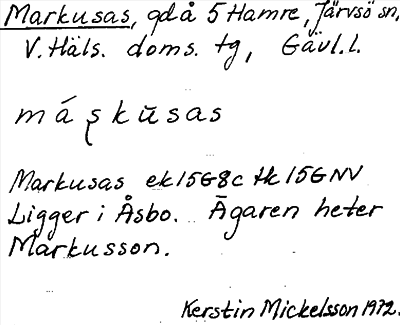 Markusas, gdå 5 Hamre, Järvsö sn,
V. Häls. doms. tg, Gävl. l.
máʂkūsas
Markusas ek 15G8c Hk 15G NV
Ligger i Åsbo. Ägaren heter
Markusson.
Kerstin Mickelsson 1972.